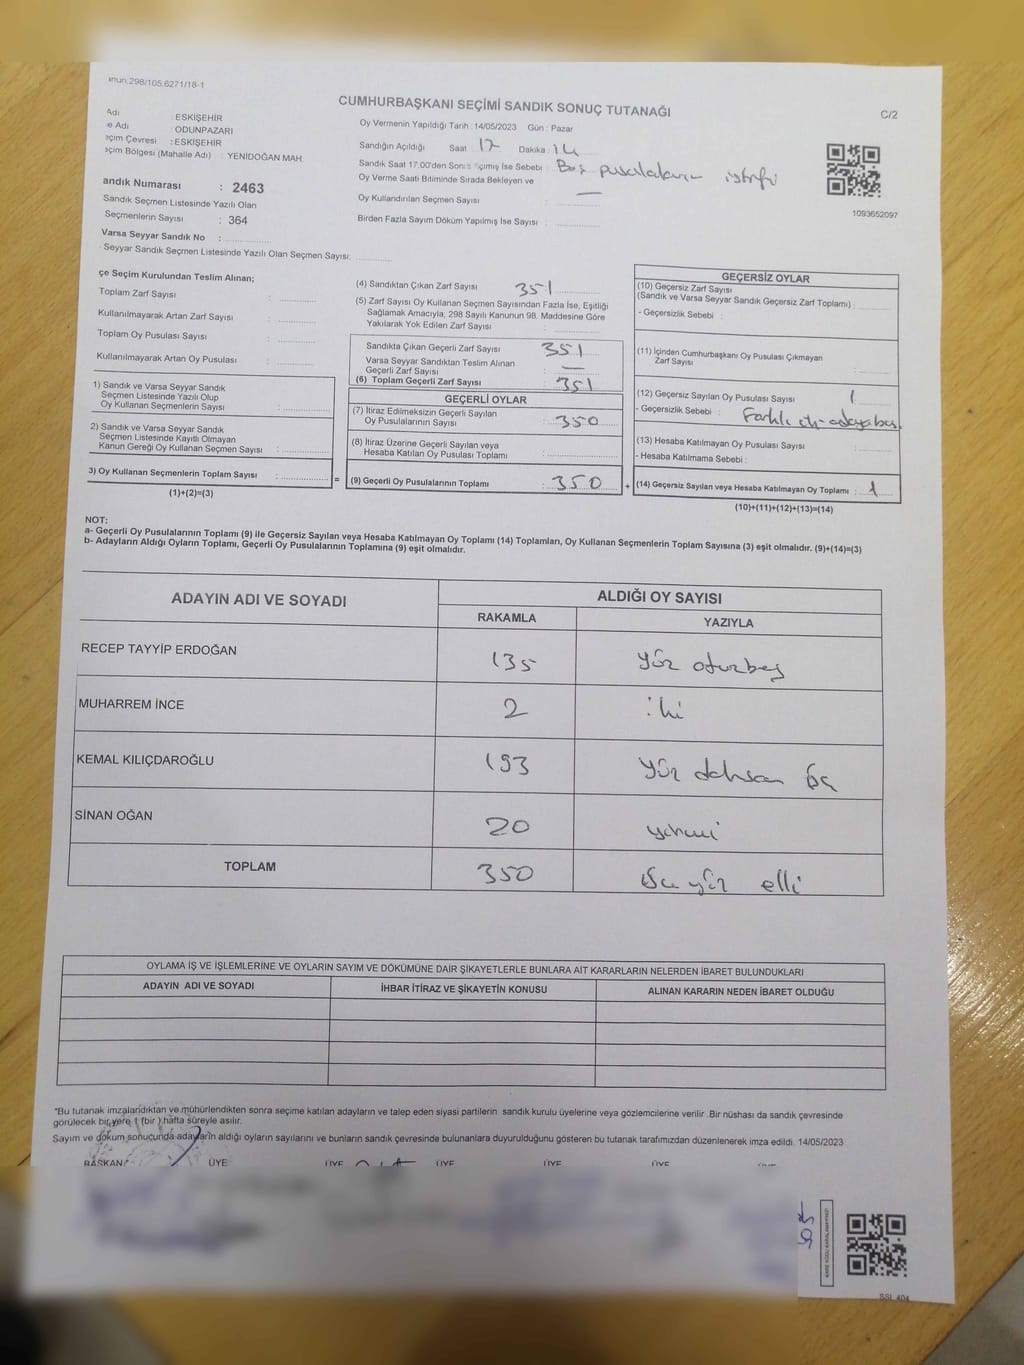 anun:298/105.6271/18-1
CUMHURBAŞKANI SEÇİMİ SANDIK SONUÇ TUTANAĞI
C/2
Adı : ESKİŞEHİR
e Adı : ODUNPAZARI
eçim Çevresi : ESKİŞEHİR
eçim Bölgesi (Mahalle Adı) : YENİDOĞAN MAH.
andık Numarası : 2463
Sandık Seçmen Listesinde Yazılı Olan
Seçmenlerin Sayısı : 364
Varsa Seyyar Sandık No :
Seyyar Sandık Seçmen Listesinde Yazılı Olan Seçmen Sayısı:
Oy Vermenin Yapıldığı Tarih : 14/05/2023 Gün : Pazar
Sandığın Açıldığı Saat : 17 Dakika : 14
Sandık Saat 17.00'den Sonra Açımış İse Sebebi : Boş pusulaların
Oy Verme Saati Bitiminde Sırada Bekleyen ve
Oy Kullandırılan Seçmen Sayısı : —
Birden Fazla Sayım Döküm Yapılmış İse Sayısı :
1093652097
çe Seçim Kurulundan Teslim Alınan;
Toplam Zarf Sayısı :
Kullanılmayarak Artan Zarf Sayısı :
Toplam Oy Pusulası Sayısı :
Kullanılmayarak Artan Oy Pusulası :
1) Sandık ve Varsa Seyyar Sandık
Seçmen Listesinde Yazılı Olup
Oy Kullanan Seçmenlerin Sayısı :
2) Sandık ve Varsa Seyyar Sandık
Seçmen Listesinde Kayıtlı Olmayan
Kanun Gereği Oy Kullanan Seçmen Sayısı :
3) Oy Kullanan Seçmenlerin Toplam Sayısı :
(1)+(2)=(3)
=
(4) Sandıktan Çıkan Zarf Sayısı 351
(5) Zarf Sayısı Oy Kullanan Seçmen Sayısından Fazla İse, Eşitliği
Sağlamak Amacıyla, 298 Sayılı Kanunun 98. Maddesine Göre
Yakılarak Yok Edilen Zarf Sayısı :
Sandıkta Çıkan Geçerli Zarf Sayısı 351
Varsa Seyyar Sandıktan Teslim Alınan
Geçerli Zarf Sayısı : —
(6) Toplam Geçerli Zarf Sayısı 351
GEÇERLİ OYLAR
(7) İtiraz Edilmeksizin Geçerli Sayılan
Oy Pusulalarının Sayısı : 350
(8) İtiraz Üzerine Geçerli Sayılan veya
Hesaba Katılan Oy Pusulası Toplamı :
(9) Geçerli Oy Pusulalarının Toplamı : 350
+
GEÇERSİZ OYLAR
(10) Geçersiz Zarf Sayısı
(Sandık ve Varsa Seyyar Sandık Geçersiz Zarf Toplamı) :
- Geçersizlik Sebebi :
(11) İçinden Cumhurbaşkanı Oy Pusulası Çıkmayan
Zarf Sayısı :
(12) Geçersiz Sayılan Oy Pusulası Sayısı : 1
- Geçersizlik Sebebi : Farklı
(13) Hesaba Katılmayan Oy Pusulası Sayısı :
- Hesaba Katılmama Sebebi :
(14) Geçersiz Sayılan veya Hesaba Katılmayan Oy Toplamı : 1
(10)+(11)+(12)+(13)=(14)
NOT:
a- Geçerli Oy Pusulalarının Toplamı (9) ile Geçersiz Sayılan veya Hesaba Katılmayan Oy Toplamı (14) Toplamları, Oy Kullanan Seçmenlerin Toplam Sayısına (3) eşit olmalıdır. (9)+(14)=(3)
b- Adayların Aldığı Oyların Toplamı, Geçerli Oy Pusulalarının Toplamına (9) eşit olmalıdır.
ADAYIN ADI VE SOYADI
ALDIĞI OY SAYISI
RAKAMLA YAZIYLA
RECEP TAYYİP ERDOĞAN 135 yüz otuzbeş
MUHARREM İNCE 2 iki
KEMAL KILIÇDAROĞLU 193 yüz doksan üç
SİNAN OĞAN 20 yirmi
TOPLAM 350 üç yüz elli
OYLAMA İŞ VE İŞLEMLERİNE VE OYLARIN SAYIM VE DÖKÜMÜNE DAİR ŞİKAYETLERLE BUNLARA AİT KARARLARIN NELERDEN İBARET BULUNDUKLARI
ADAYIN ADI VE SOYADI İHBAR İTİRAZ VE ŞİKAYETİN KONUSU ALINAN KARARIN NEDEN İBARET OLDUĞU
*Bu tutanak imzalandıktan ve mühürlendikten sonra seçime katılan adayların ve talep eden siyasi partilerin sandık kurulu üyelerine veya gözlemcilerine verilir .Bir nüshası da sandık çevresinde
görülecek bir yere 1 (bir ) hafta süreyle asılır.
Sayım ve döküm sonucunda adayların aldığı oyların sayılarını ve bunların sandık çevresinde bulunanlara duyurulduğunu gösteren bu tutanak tarafımızdan düzenlenerek imza edildi. 14/05/2023
BAŞKAN ÜYE ÜYE ÜYE ÜYE ÜYE
SSL 404